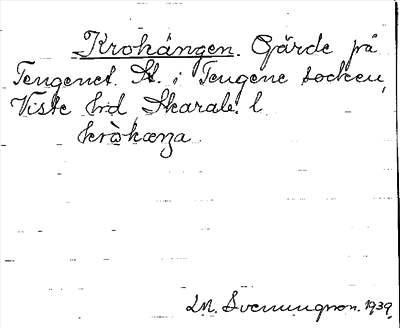 Krokängen. Gärde på
Tengenet. St. i Tengene socken,
Viste hrd, Skarab. l
kròkæŋa
I.M. Svenungson. 1939.